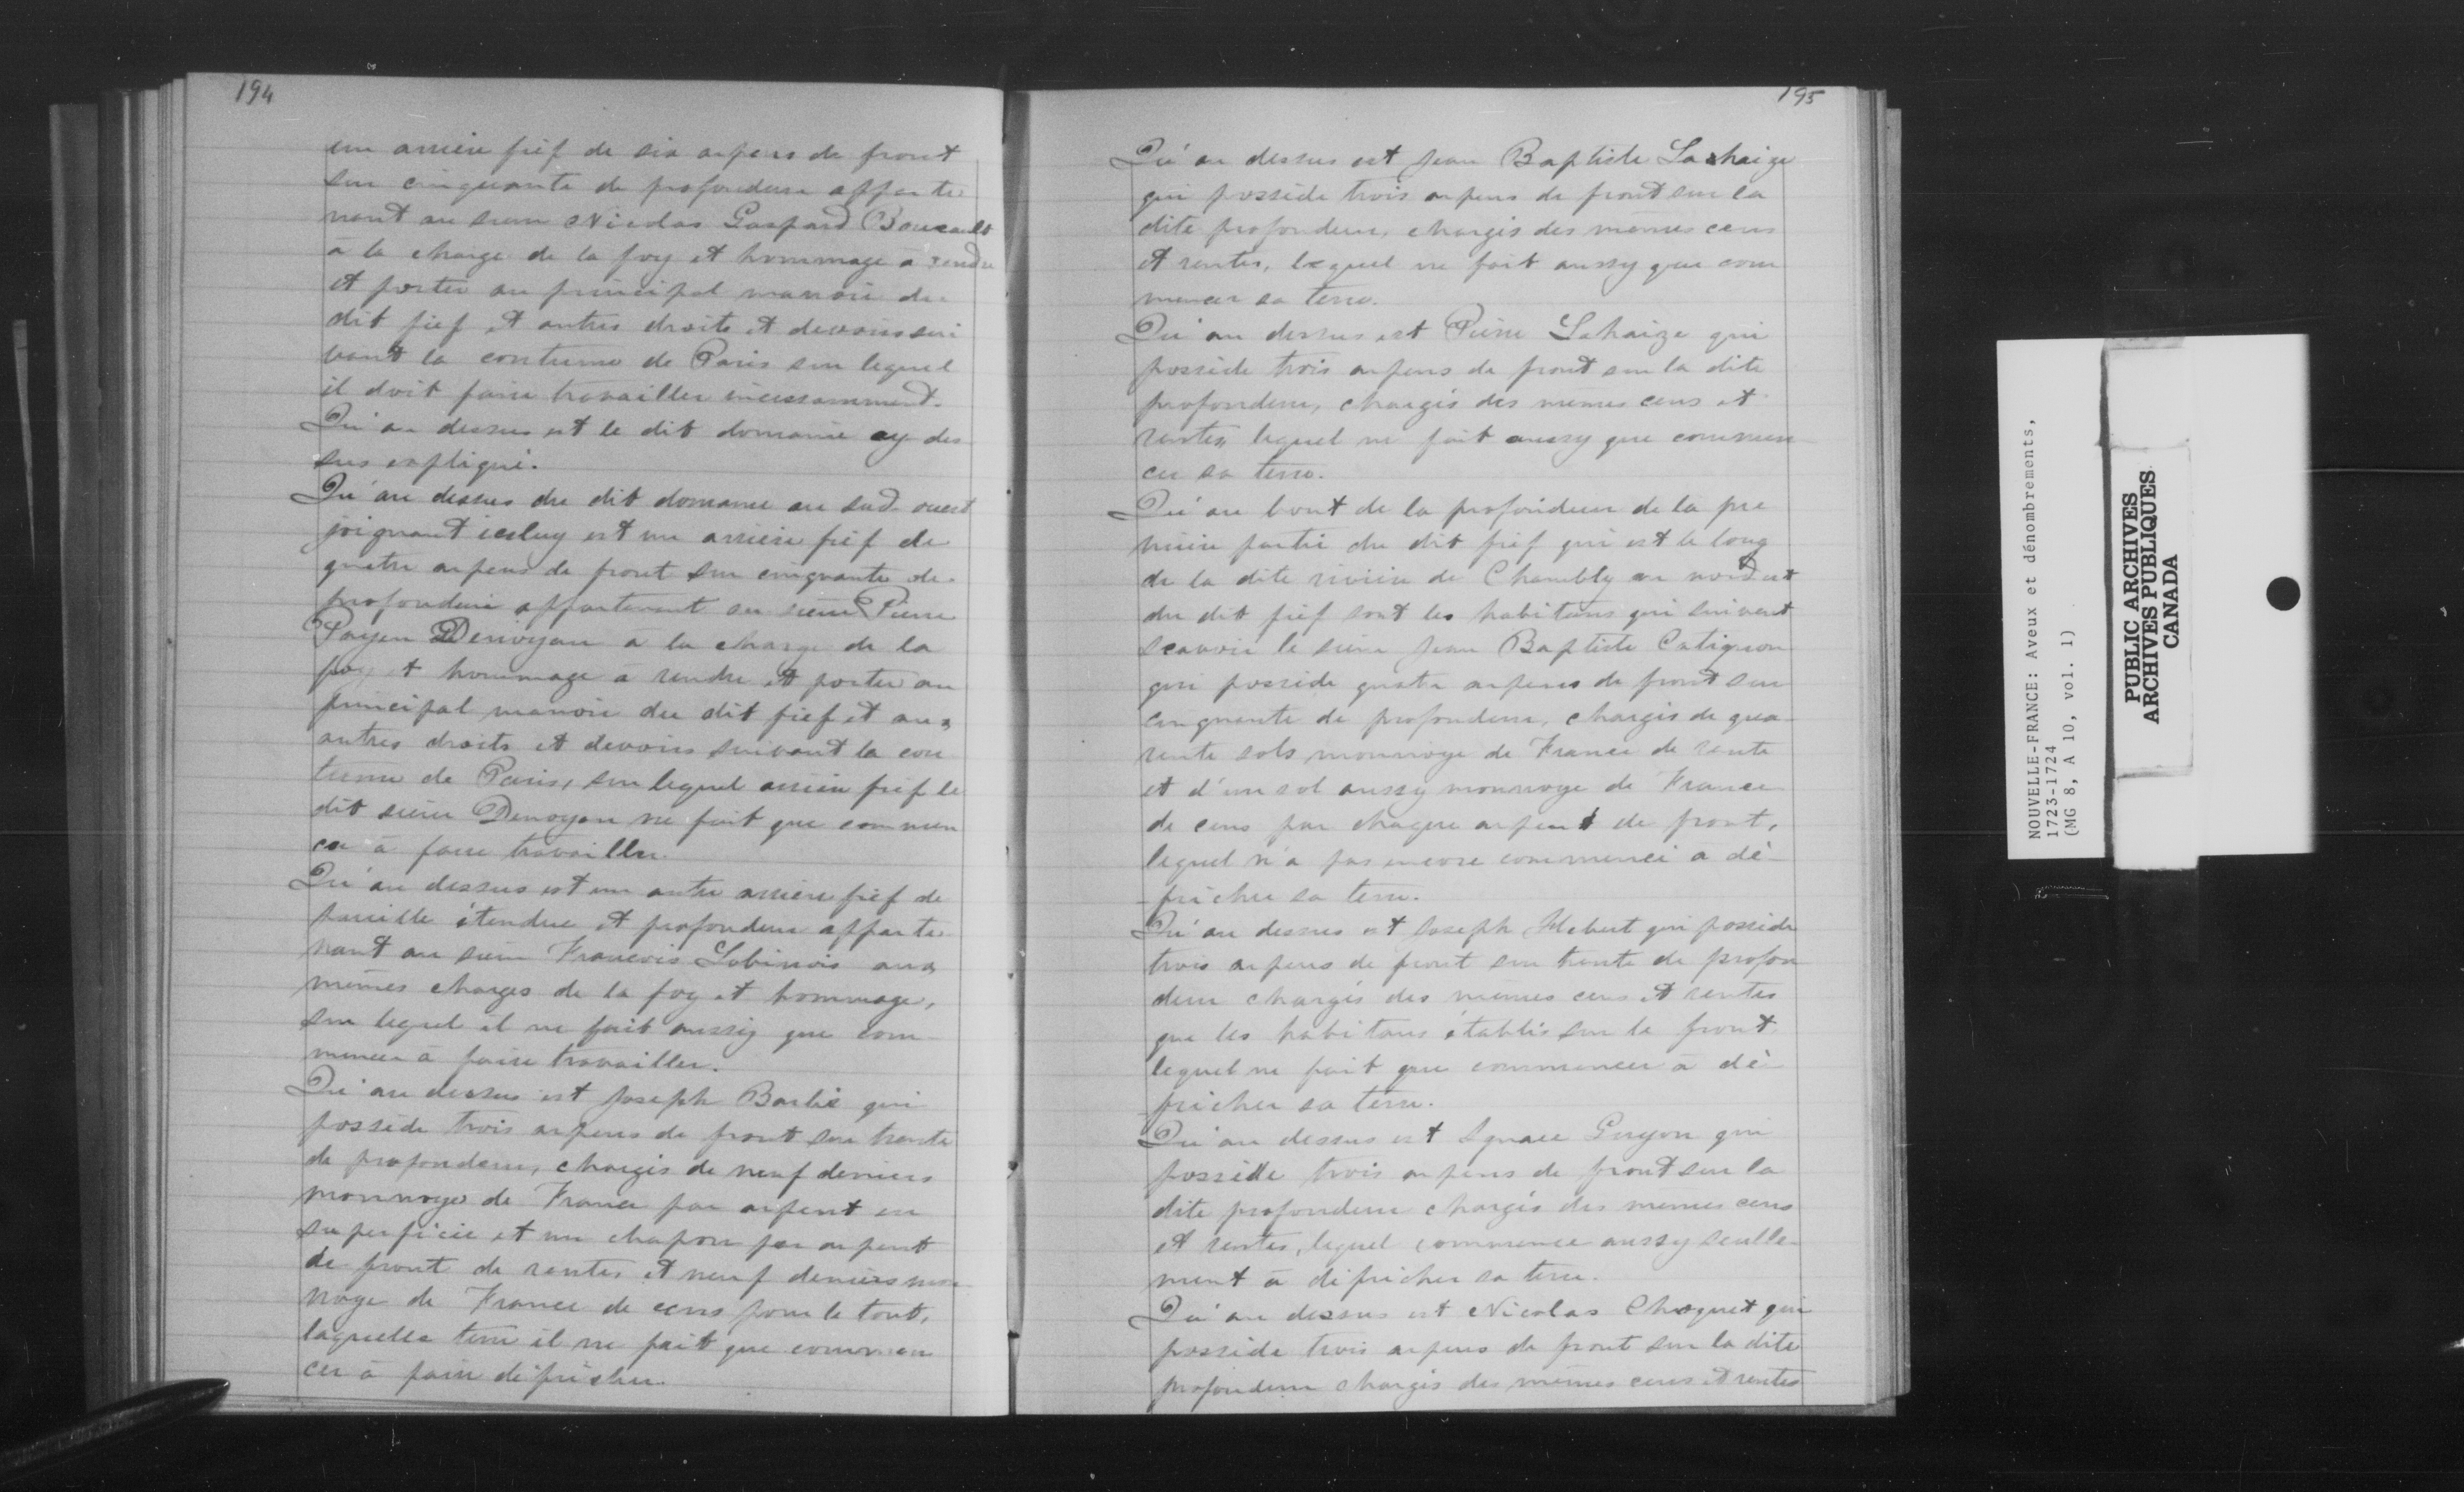 194
un arrière fief de six arpens de front
sur cinquante de profondeur apparte
nant au sieur Nicolas Gaspard Boucault
à la charge de la foy et hommage à rendre
et porter au principal manoir du
dit fief et autres droits et devoirs sui
vant la coutume de Paris sur lequel
il doit faire travailler incessamment.
Qu'au dessus est le dit domaine cy des
sus expliqué.
Qu'au dessus du dit domaine au sud-ouest
joignant iceluy est un arrière fief de
quatre arpens de front sur cinquante de
profondeur appartenant au sieur Pierre
Payen Denoyan à la charge de la
foy et hommage à rendre et porter au
principal manoir du dit fief et aux
autres droits et devoirs suivant la cou
tume de Paris, sur lequel arrière fief le
dit sieur Denoyan ne fait que commen
cer à faire travailler.
Qu'au dessus est un autre arrière fief de
pareille étendue et profondeur apparte
nant au sieur Francois Lubinois aux
mêmes charges de la foy et hommage,
sur lequel il ne fait aussy que com
mencer à faire travailler.
Qu'au dessus est Joseph Barbé qui
possède trois arpens de front sur trente
de profondeur, chargés de neuf deniers
monnoye de France par arpent en
superficie et un chapon par arpent
de front de rentes et neuf deniers mon
noye de France de cens pour le tout,
laquelle terre il ne fait que commen
cer à faire défricher.
195
Qu'au dessus est Jean Baptiste Lahaize
qui possède trois arpens de front sur la
dite profondeur, chargés des mêmes cens
et rentes, lequel ne fait aussy que com
mencer sa terre.
Qu'au dessus est Pierre Lahaize qui
possède trois arpens de front sur la dite
profondeur, chargés des memes cens et
rentes, lequel ne fait aussy que commen
cer sa terre.
Qu'au bout de la profondeur de la pre
mière partie du dit fief qui est le long
de la dite rivière de Chambly au nord est
du dit fief sont les habitans qui suivent
scavoir le sieur Jean Baptiste Catignon
qui possède quatre arpens de front sur
cinquante de profondeur, chargés de qua-
rente sols monnoye de France de rente
et d'un sol aussy monnoye de France
de cens par chaque arpent de front,
lequel n'a pas encore commencé à dé-
fricher sa terre.
Qu'au dessus est Joseph Hebert qui possède
trois arpens de front sur trente de profon
deur chargés des memes cens et rentes
que les habitans établis sur le front
lequel ne fait que commencer à dé-
fricher sa terre.
Qu'au dessus est Ignace Guyon qui
possède trois arpens de front sur la
dite profondeur chargés des memes cens
et rentes, lequel commence aussy seulle-
ment à défricher sa terre.
Qu'au dessus est Nicolas Choquet qui
possède trois arpens de front sur la dite
profondeur chargés des mêmes cens et rentes
NOUVELLE-FRANCE: Aveux et dénombrements,
1723-1724
(MG 8, A 10, vol. 1)
PUBLIC ARCHIVES
ARCHIVES PUBLIQUES
CANADA